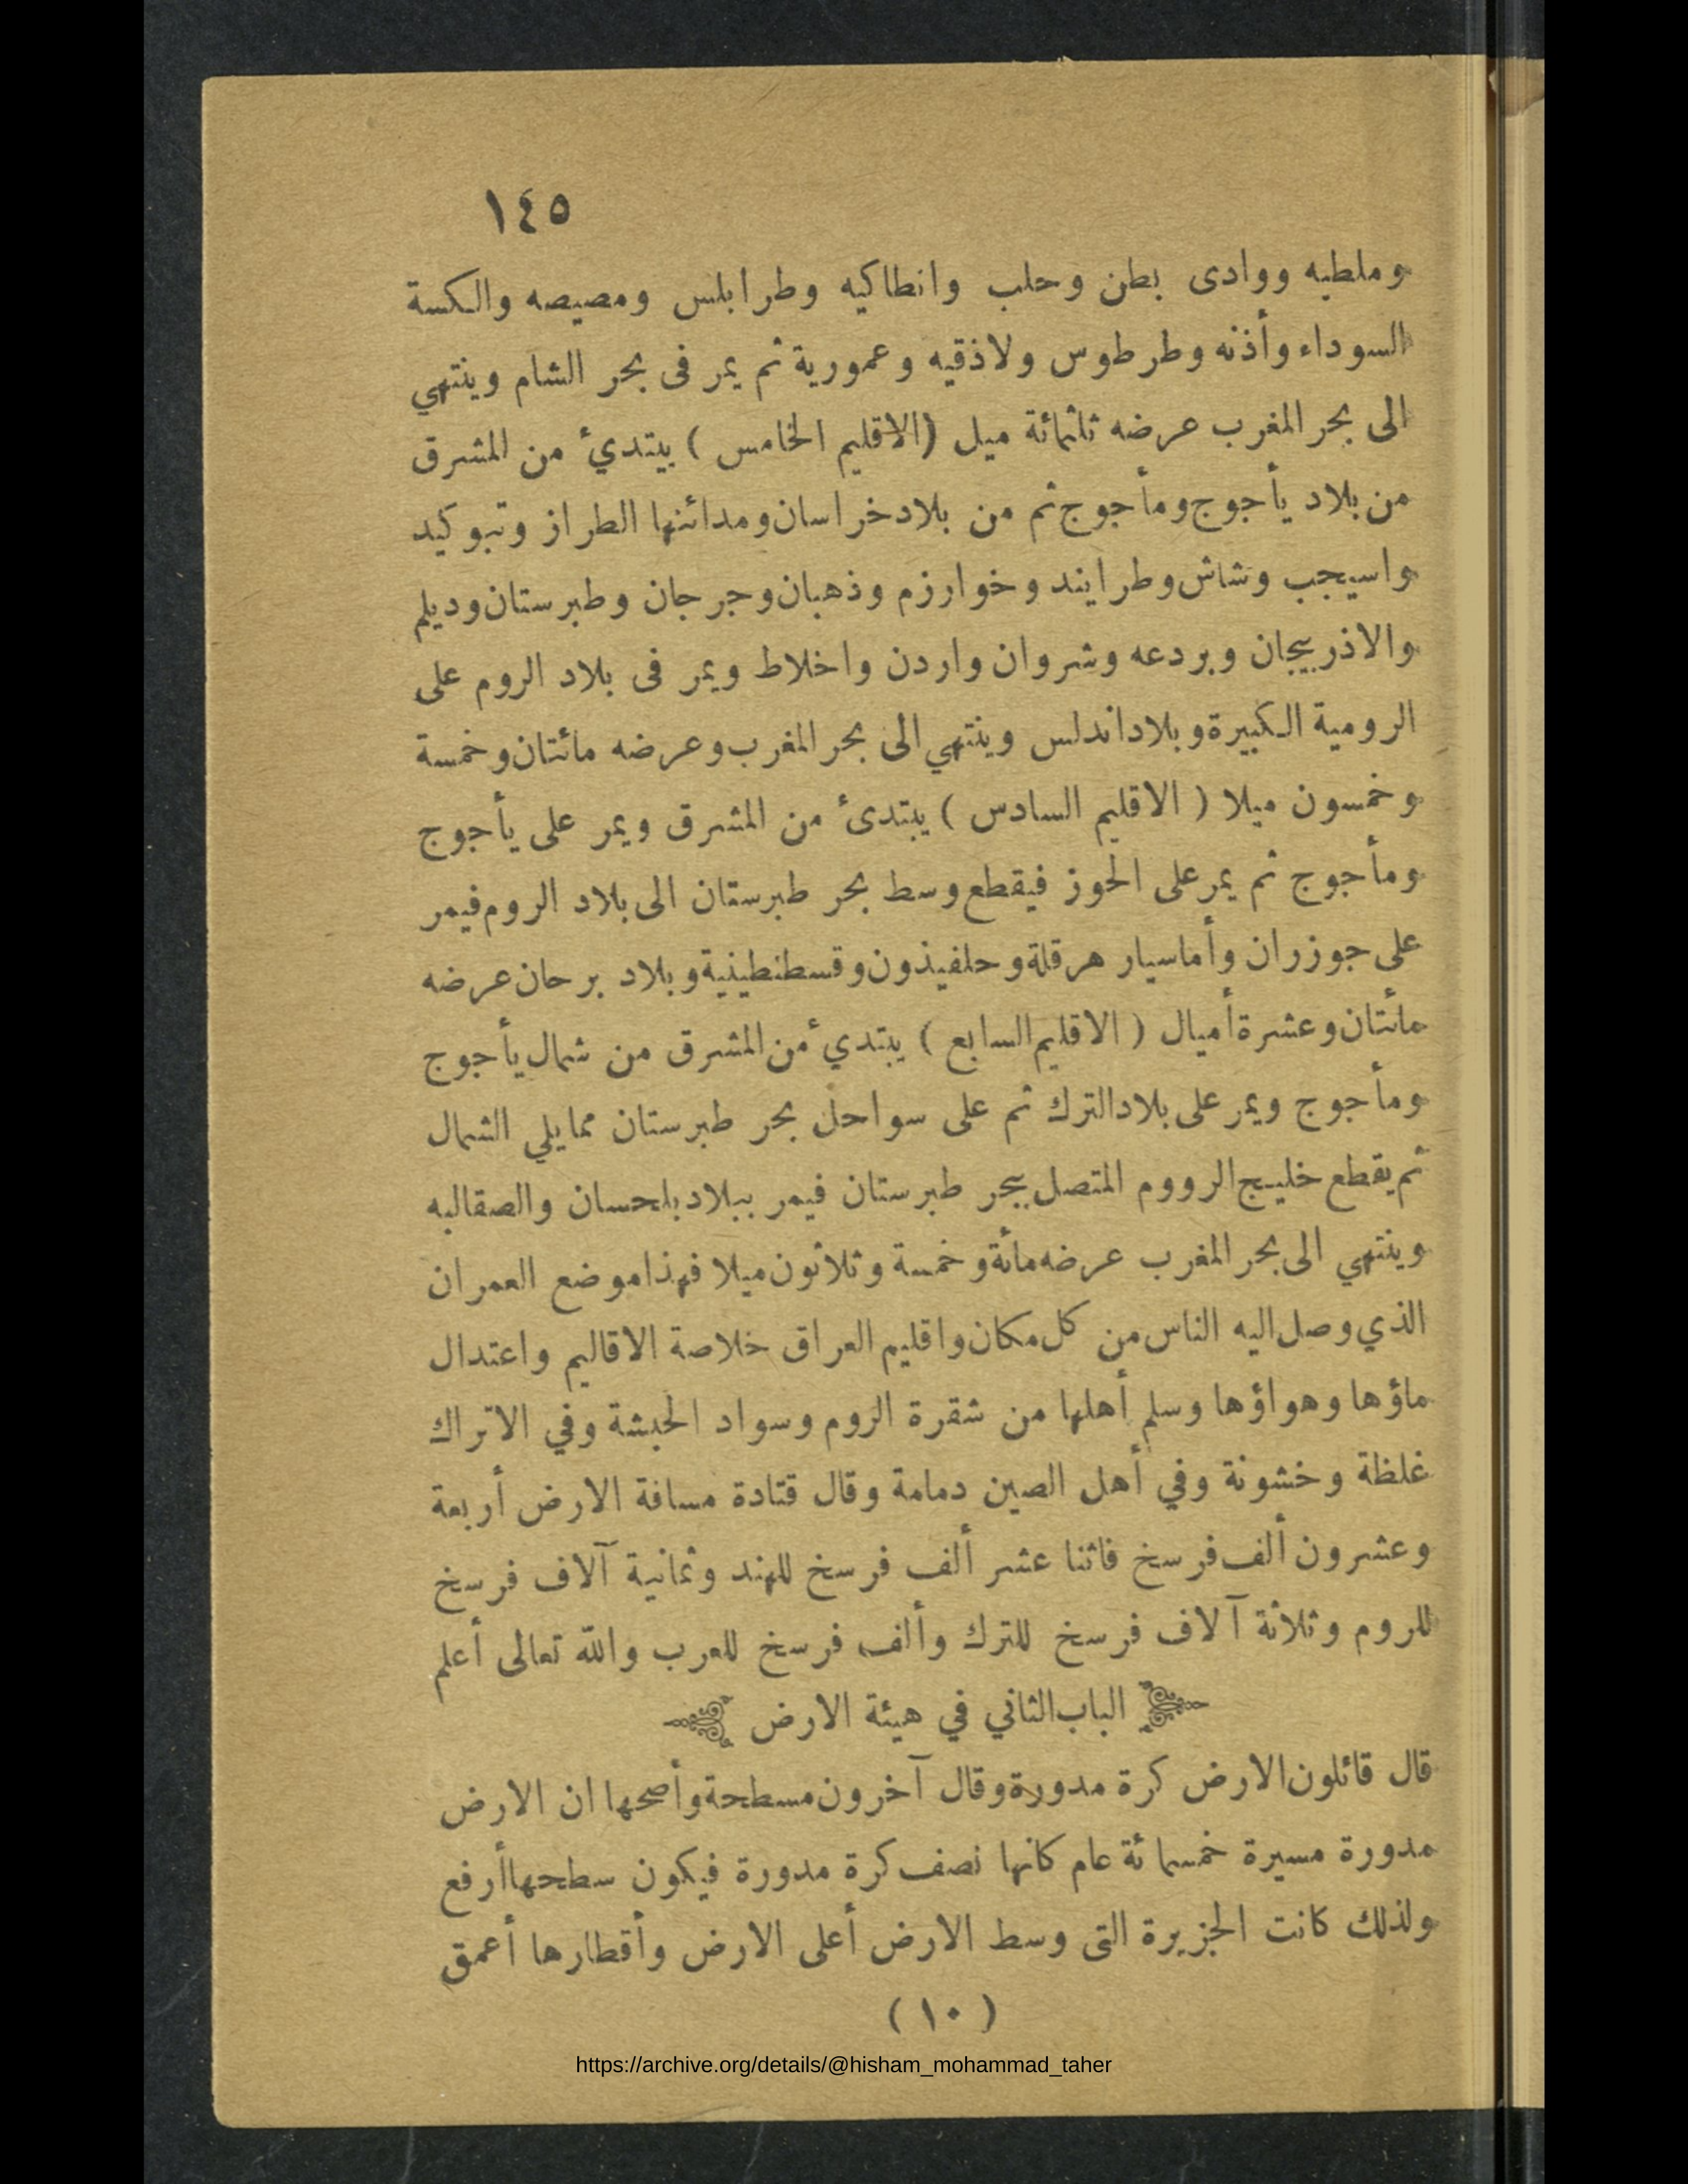 ١٤٥
وملطيه ووادى بطن وحلب وانطاكيه وطرابلس ومصيصه والكسة
السوداء وأذنه وطرطوس ولاذقيه وعمورية ثم يمر فى بحر الشام وينتهي
الى بحر المغرب عرضه ثلثمائة ميل (الاقليم الخامس ) يبتديء من المشرق
من بلاد يأجوج ومأجوج ثم من بلاد خراسان ومدائنها الطراز وتبوكيد
واسيجب وشاش وطرايند وخوارزم وذهبان وجرجان وطبرستان وديلم
والاذربيجان وبردعه وشروان واردن واخلاط ويمر فى بلاد الروم على
الرومية الكبيرة وبلاد اندلس وينتهي الى بحر المغرب وعرضه مائتان وخمسة
وخمسون ميلا ( الاقليم السادس ) يبتدىء من المشرق ويمر على يأجوج
ومأجوج ثم يمر على الحوز فيقطع وسط بحر طبرستان الى بلاد الروم فيمر
على جوزران وأماسيار هرقلة وحلفيذون وقسطنطينية وبلاد برحان عرضه
مائتان وعشرة أميال ( الاقليم السابع ) يبتديء من المشرق من شمال يأجوج
ومأجوج ويمر على بلاد الترك ثم على سواحل بحر طبرستان مما يلي الشمال
ثم يقطع خليج الرووم المتصل ببحر طبرستان فيمر ببلاد بلحسان والصقالبه
وينتهي الى بحر المغرب عرضه مائة وخمسة وثلاثون ميلا فهذا موضع العمران
الذي وصل اليه الناس من كل مكان واقليم العراق خلاصة الاقاليم واعتدال
ماؤها وهواؤها وسلم أهلها من شقرة الروم وسواد الحبشة وفي الاتراك
غلظة وخشونة وفي أهل الصين دمامة وقال قتادة مسافة الارض أربعة
وعشرون ألف فرسخ فاثنا عشر ألف فرسخ للهند وثمانية آلاف فرسخ
للروم وثلاثة آلاف فرسخ للترك وألف فرسخ للعرب والله تعالى أعلم
الباب الثاني في هيئة الارض
قال قائلون الارض كرة مدورة وقال آخرون مسطحة وأصحها ان الارض
مدورة مسيرة خمسمائة عام كانها نصف كرة مدورة فيكون سطحها أرفع
ولذلك كانت الجزيرة التى وسط الارض أعلى الارض وأقطارها أعمق
( ١٠ )
https://archive.org/details/@hisham_mohammad_taher